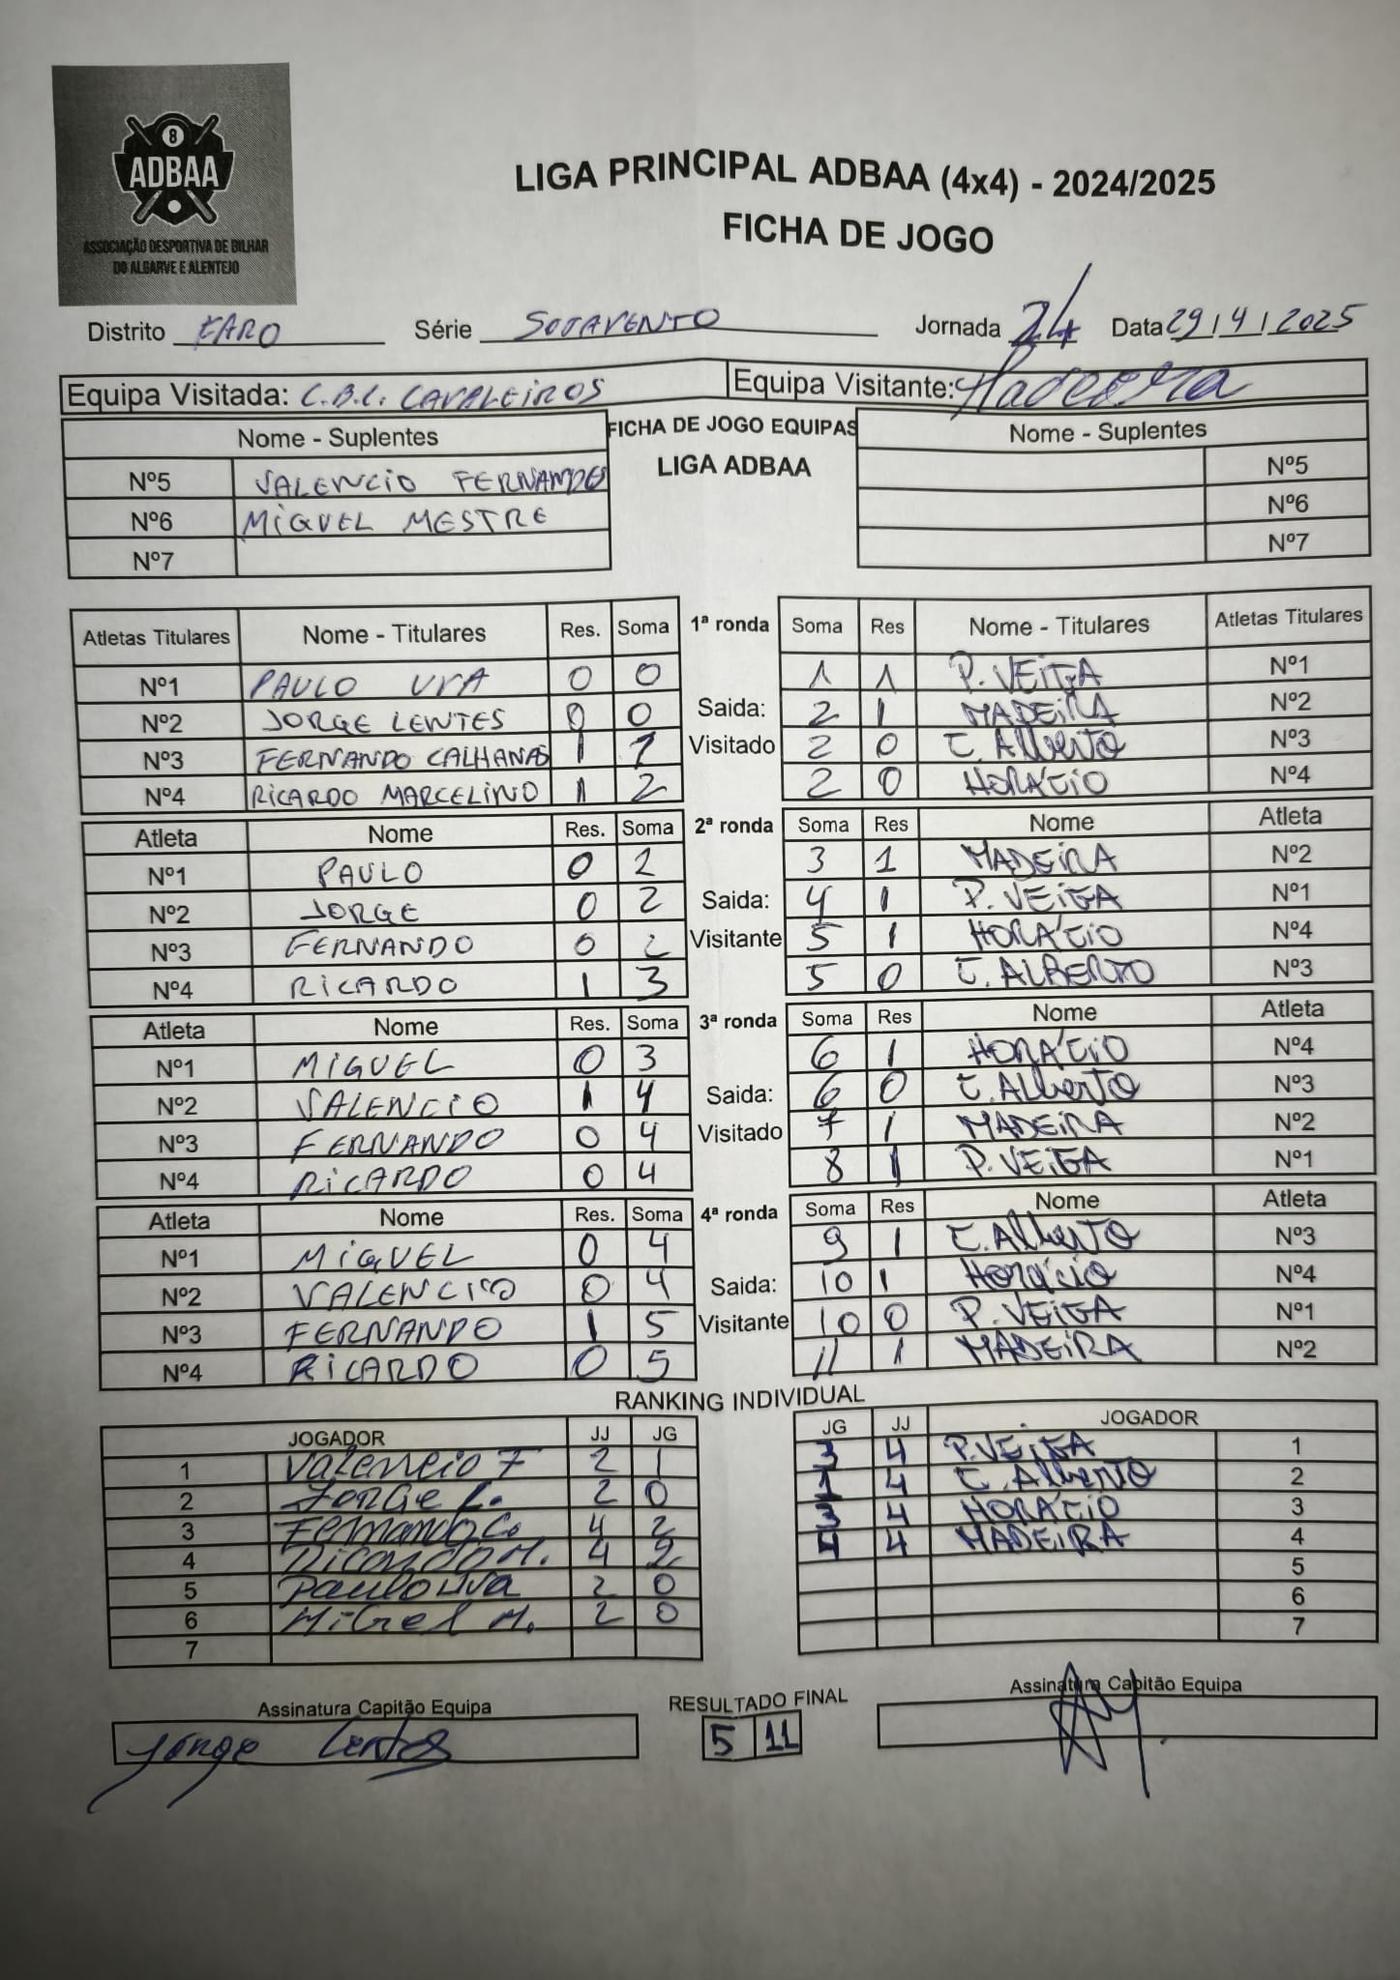 8
ADBAA
ASSOCIAÇÃO DESPORTIVA DE BILHAR
DO ALGARVE E ALENTEJO
LIGA PRINCIPAL ADBAA (4x4) - 2024/2025
FICHA DE JOGO
Distrito FARO Série SOTAVENTO Jornada 24 Data 29/4/2025
Equipa Visitada: C.B.L. CAVALEIROS Equipa Visitante:
Nome - Suplentes FICHA DE JOGO EQUIPAS Nome - Suplentes
LIGA ADBAA
Nº5 VALENCIO FERNANDES Nº5
Nº6 MIGUEL MESTRE Nº6
Nº7 Nº7
Atletas Titulares Nome - Titulares Res. Soma 1ª ronda Soma Res Nome - Titulares Atletas Titulares
Nº1 PAULO UVA 0 0 1 1 P. VEIGA Nº1
Nº2 JORGE LENTES 0 0 Saida: 2 1 MADEIRA Nº2
Nº3 FERNANDO CALHANAS 1 1 Visitado 2 0 C. Alberto Nº3
Nº4 RICARDO MARCELINO 1 2 2 0 HORÁCIO Nº4
Atleta Nome Res. Soma 2ª ronda Soma Res Nome Atleta
Nº1 PAULO 0 2 3 1 MADEIRA Nº2
Nº2 JORGE 0 2 Saida: 4 1 P. VEIGA Nº1
Nº3 FERNANDO 0 2 Visitante 5 1 HORÁCIO Nº4
Nº4 RICARDO 1 3 5 0 C. ALBERTO Nº3
Atleta Nome Res. Soma 3ª ronda Soma Res Nome Atleta
Nº1 MIGUEL 0 3 6 1 HORÁCIO Nº4
Nº2 VALENCIO 1 4 Saida: 6 0 C. Alberto Nº3
Nº3 FERNANDO 0 4 Visitado 7 1 MADEIRA Nº2
Nº4 RICARDO 0 4 8 1 P. VEIGA Nº1
Atleta Nome Res. Soma 4ª ronda Soma Res Nome Atleta
Nº1 MIGUEL 0 4 9 1 C. Alberto Nº3
Nº2 VALENCIO 0 4 Saida: 10 1 Horácio Nº4
Nº3 FERNANDO 1 5 Visitante 10 0 P. VEIGA Nº1
Nº4 RICARDO 0 5 11 1 MADEIRA Nº2
RANKING INDIVIDUAL
JOGADOR JJ JG JG JJ JOGADOR
1 Valencio F 2 1 3 4 P. VEIGA 1
2 Jorge L. 2 0 1 4 C. Alberto 2
3 Fernando C. 4 2 3 4 HORÁCIO 3
4 Ricardo M. 4 2 4 4 MADEIRA 4
5 Paulo Uva 2 0 5
6 Miguel M. 2 0 6
7 7
Assinatura Capitão Equipa RESULTADO FINAL Assinatura Capitão Equipa
Jorge Lentes 5 11